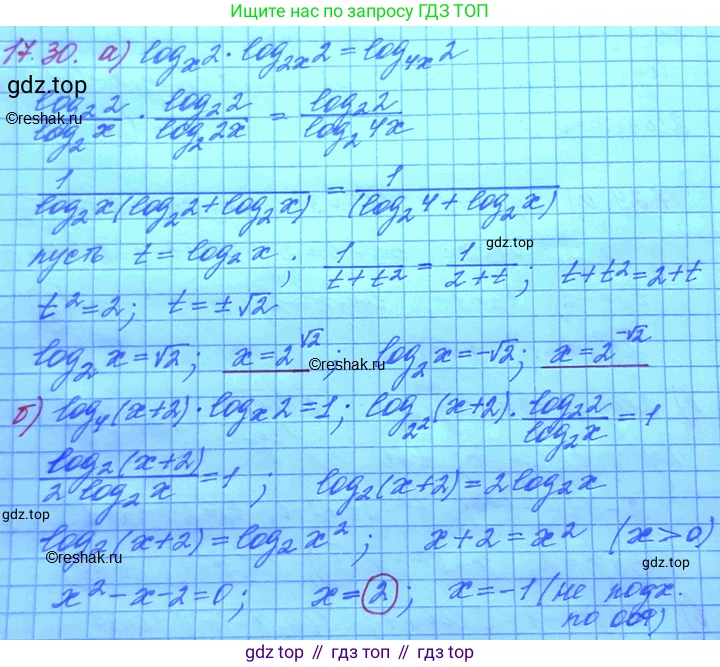 Ищите нас по запросу ГДЗ ТОП
17.30. а) logₓ2 · log₂ₓ2 = log₄ₓ2
gdz.top
log₂2/log₂x · log₂2/log₂2x = log₂2/log₂4x
©reshak.ru
1/(log₂x(log₂2+log₂x)) = 1/(log₂4+log₂x)
gdz.top
пусть t = log₂x; 1/(t+t²) = 1/(2+t); t+t²=2+t
t²=2; t=±√2
log₂x=√2; x=2^√2; log₂x=-√2; x=2^-√2
©reshak.ru
б) log₄(x+2)·logₓ2=1; log₂²(x+2)·log₂2/log₂x=1
log₂(x+2)/(2log₂x)=1; log₂(x+2)=2log₂x
gdz.top
log₂(x+2)=log₂x²; x+2=x² (x>0)
©reshak.ru
gdz.top
x²-x-2=0; x=2; x=-1 (не подх.
по одз)
gdz.top // гдз.топ // gdz.top // гдз.топ